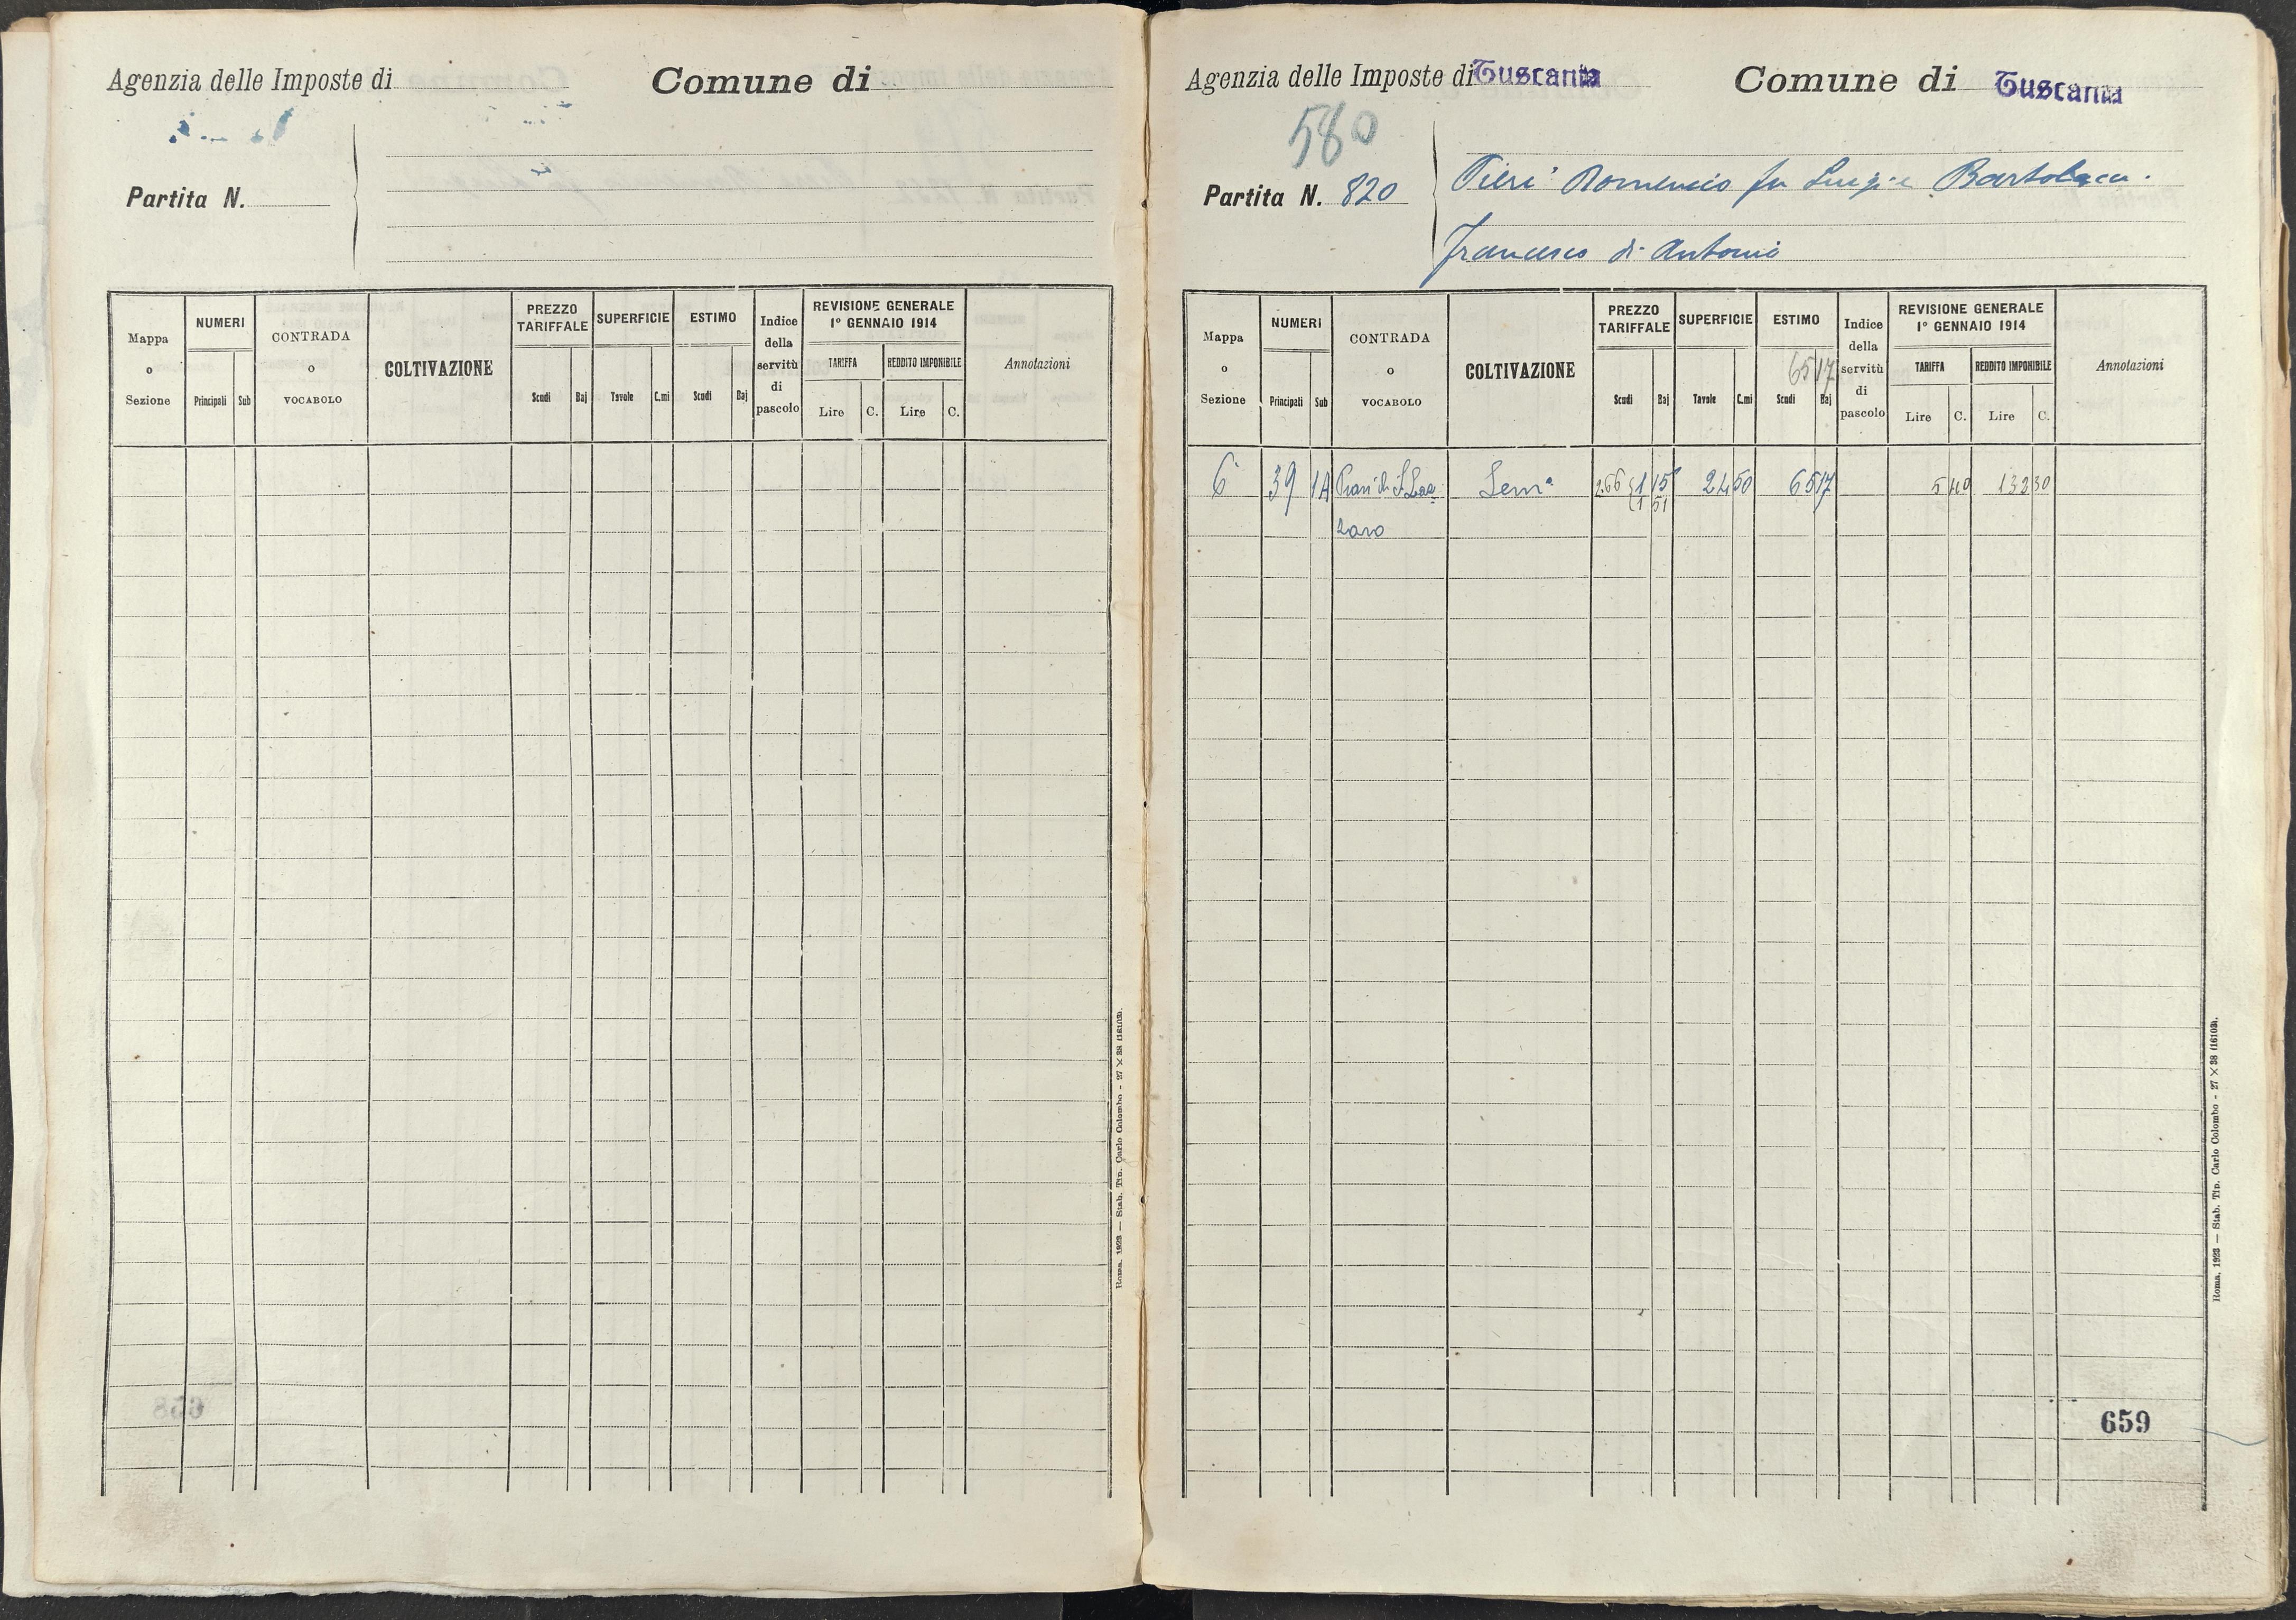 Agenzia delle Imposte di
Comune di
Partita N.
Mappa o Sezione
NUMERI
Principali Sub
CONTRADA o VOCABOLO
COLTIVAZIONE
PREZZO TARIFFALE
Scudi Baj
SUPERFICIE
Tavole C.mi
ESTIMO
Scudi Baj
Indice della servitù di pascolo
REVISIONE GENERALE
1° GENNAIO 1914
TARIFFA REDDITO IMPONIBILE
Lire C. Lire C.
Annotazioni
Roma, 1923 — Stab. Tip. Carlo Colombo - 27 × 38 (16103).
Agenzia delle Imposte di Tuscania
Comune di Tuscania
580
Partita N. 820
Pieri Domenico fu Luigi e
Francesco di Antonio
Mappa o Sezione
NUMERI
Principali Sub
CONTRADA o VOCABOLO
COLTIVAZIONE
PREZZO TARIFFALE
Scudi Baj
SUPERFICIE
Tavole C.mi
ESTIMO
65 17
Scudi Baj
Indice della servitù di pascolo
REVISIONE GENERALE
1° GENNAIO 1914
TARIFFA REDDITO IMPONIBILE
Lire C. Lire C.
Annotazioni
6 39 1A Pian di S. Laz Semª 266 1 15 24 50 65 17 5 40 132 30
zaro 1 51
659
Roma, 1923 — Stab. Tip. Carlo Colombo - 27 × 38 (16103).